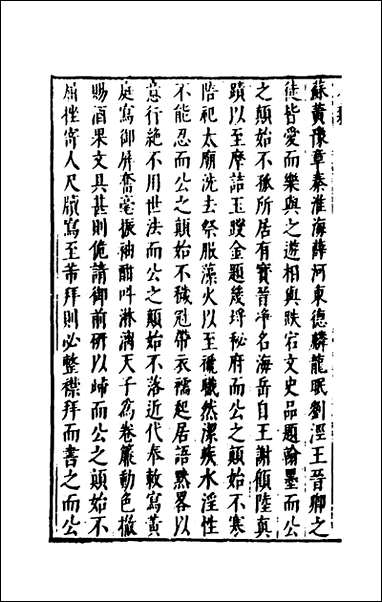 蘇黃豫章秦淮海薛河東德麟龍眠劉涇王晉卿之
徒皆愛而樂與之遊相與跌宕文史品題翰墨而公
之顛始不孤所居有寶晉淨名海岳自王謝顧陸真
蹟以至摩詰玉躞金題幾埒秘府而公之顛始不寒
陪祀太廟洗去祭服藻火以至褫職然潔疾水淫性
不能忍而公之顛始不穢冠帶衣襦起居語默畧以
意行絕不用世法而公之顛始不落近代奉敕寫黃
庭寫御屏奮毫振袖酣呌淋漓天子為卷簾動色徹
賜酒果文具甚則偽請御前硏以歸而公之顛始不
屈挫寄人尺牘寫至芾拜則必整襟拜而書之而公